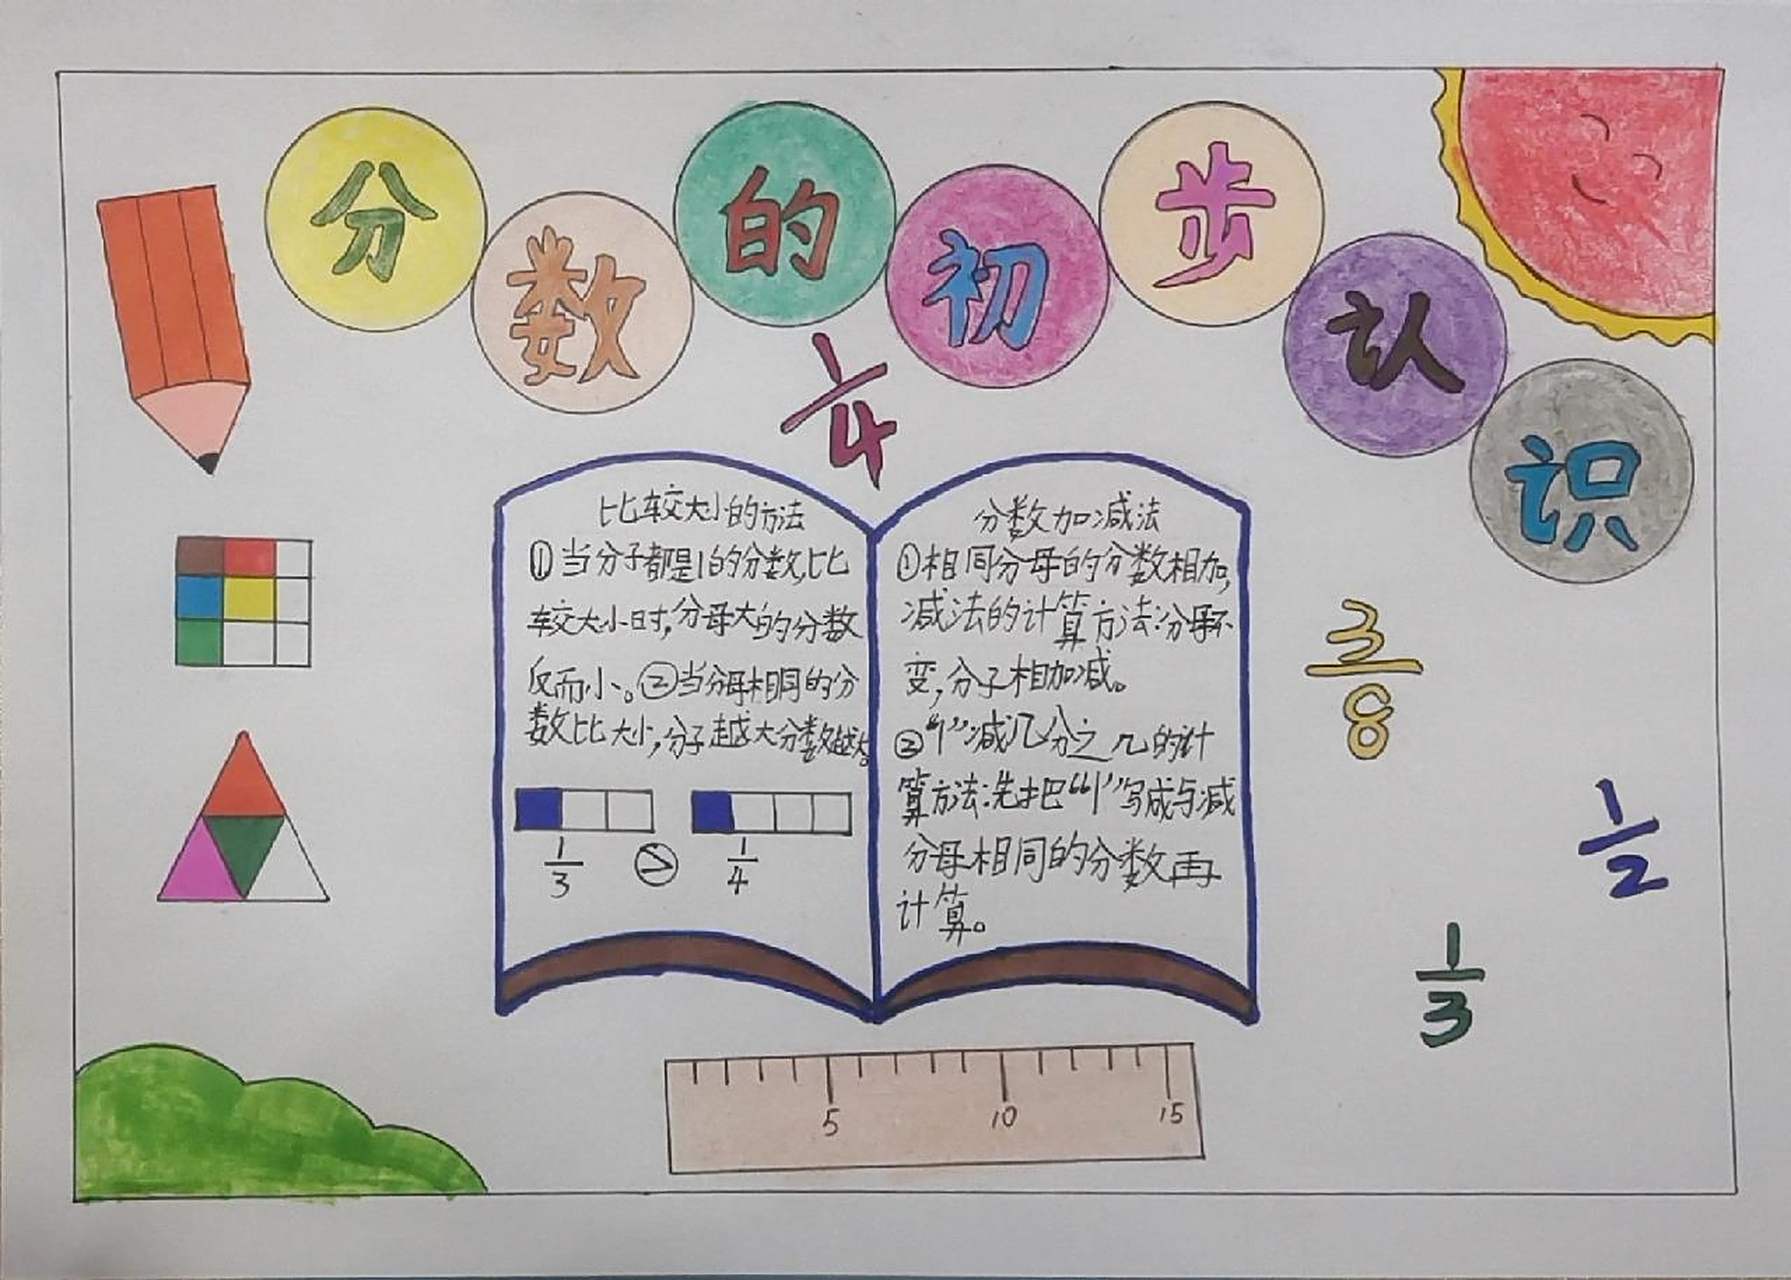 分数的初步认识
1/4
比较大小的方法
①当分子都是1的分数,比
较大小时,分母大的分数
反而小。②当分母相同的分
数比大小,分子越大分数越大。
1/3 > 1/4
分数加减法
①相同分母的分数相加,
减法的计算方法:分母不
变,分子相加减。
②“1”减几分之几的计
算方法:先把“1”写成与减
分母相同的分数再
计算。
3/8
1/2
1/3
5 10 15